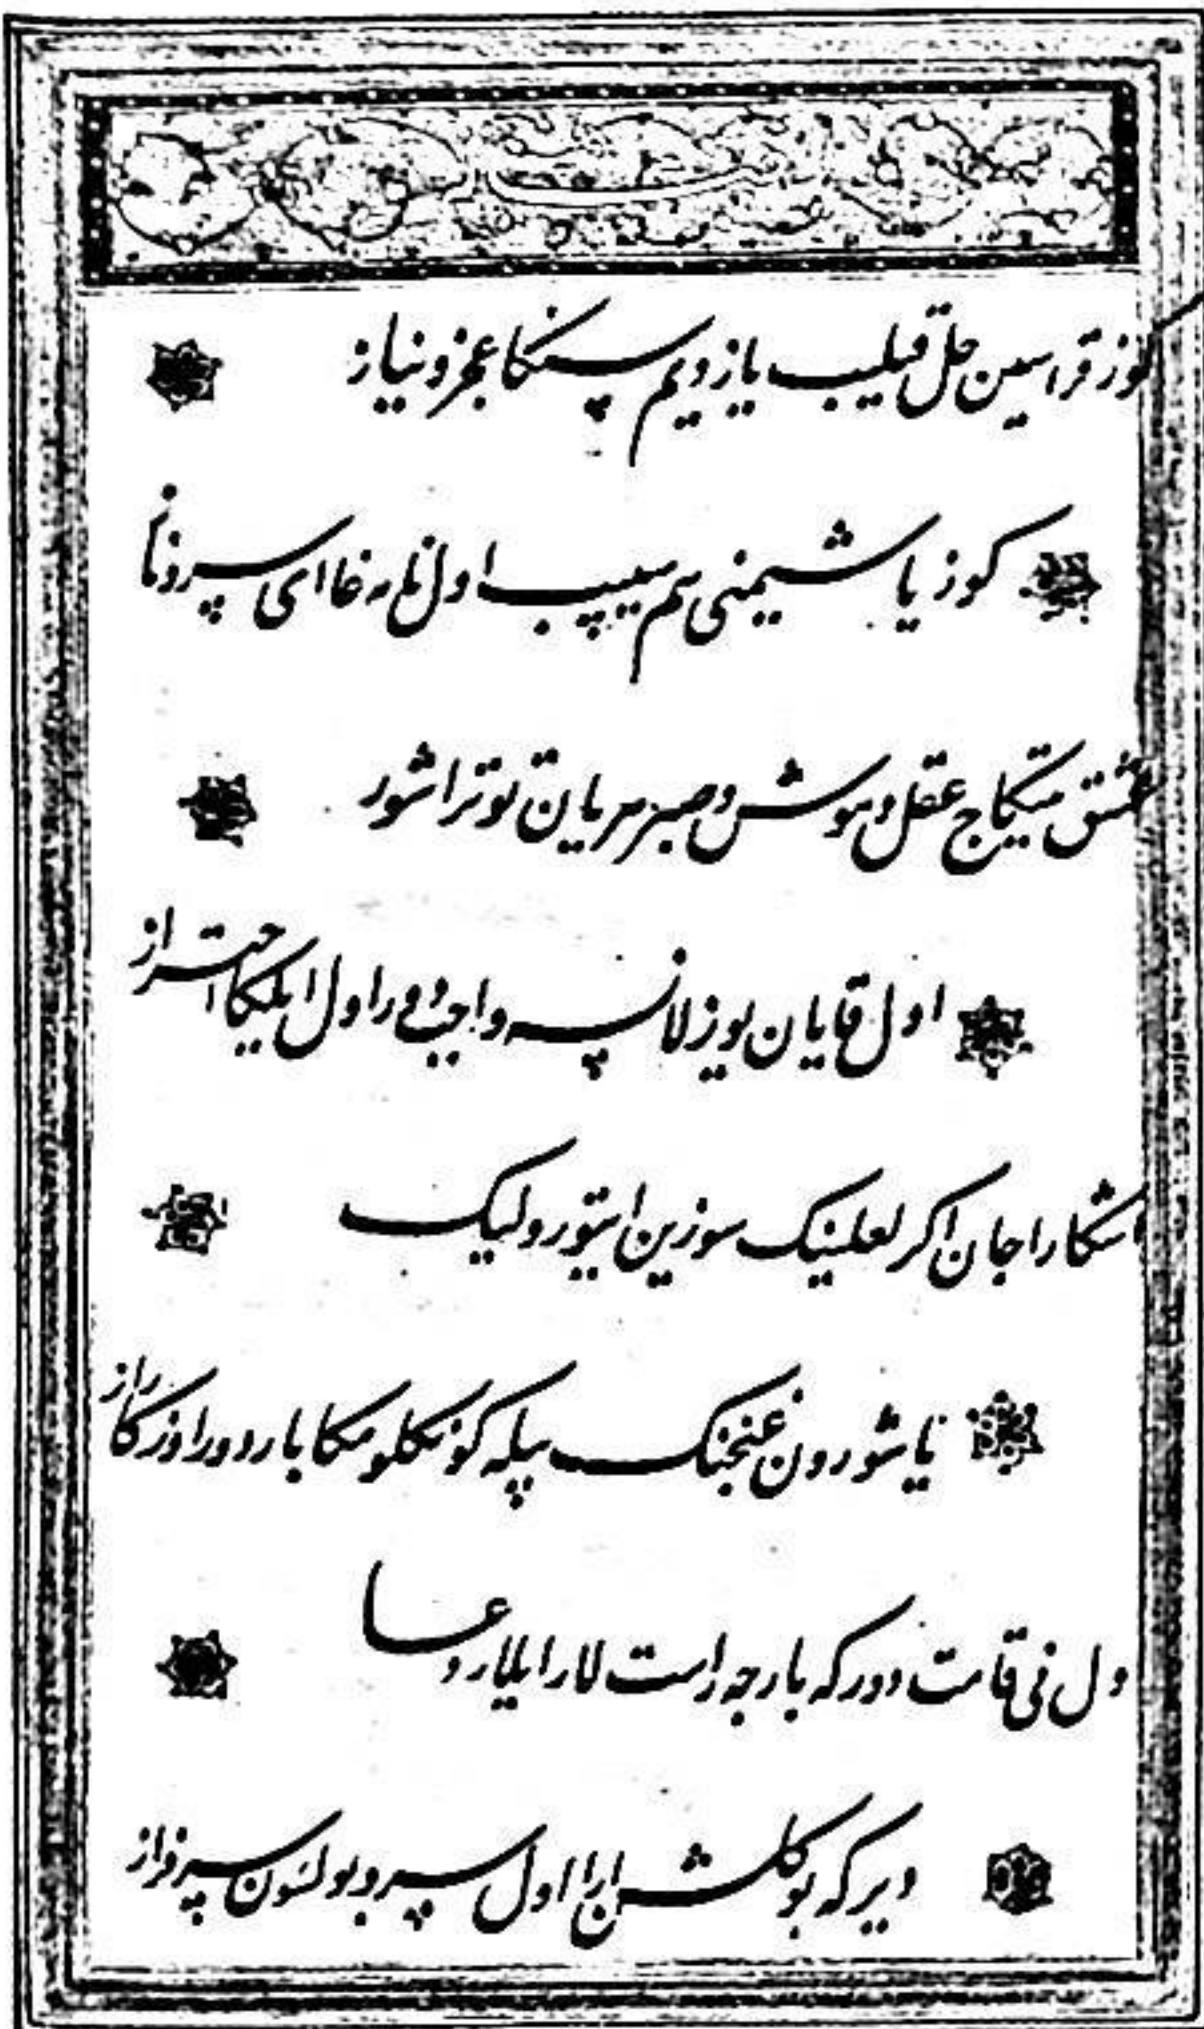 كوز قراسين حل قيليب يازديم سنكا عجز و نياز
كوز ياشيمنى هم سيپيب اول نامه غا اى سرو ناز
عشق ميتكاج عقل و هوش و صبر هر يان توترا شور
اول قايان يوزلانسه واجب دور اول ايلكا احتراز
اشكارا جان اكر لعلينك سوزين ايتور وليك
ياشورون غنجنك بيله كونكلومكا باردور اوزكا راز
اول نى قامت دور كه بارجه راست لار ايلار دعا
دير كه بو كلشن ارا اول سرو بولسون سرفراز